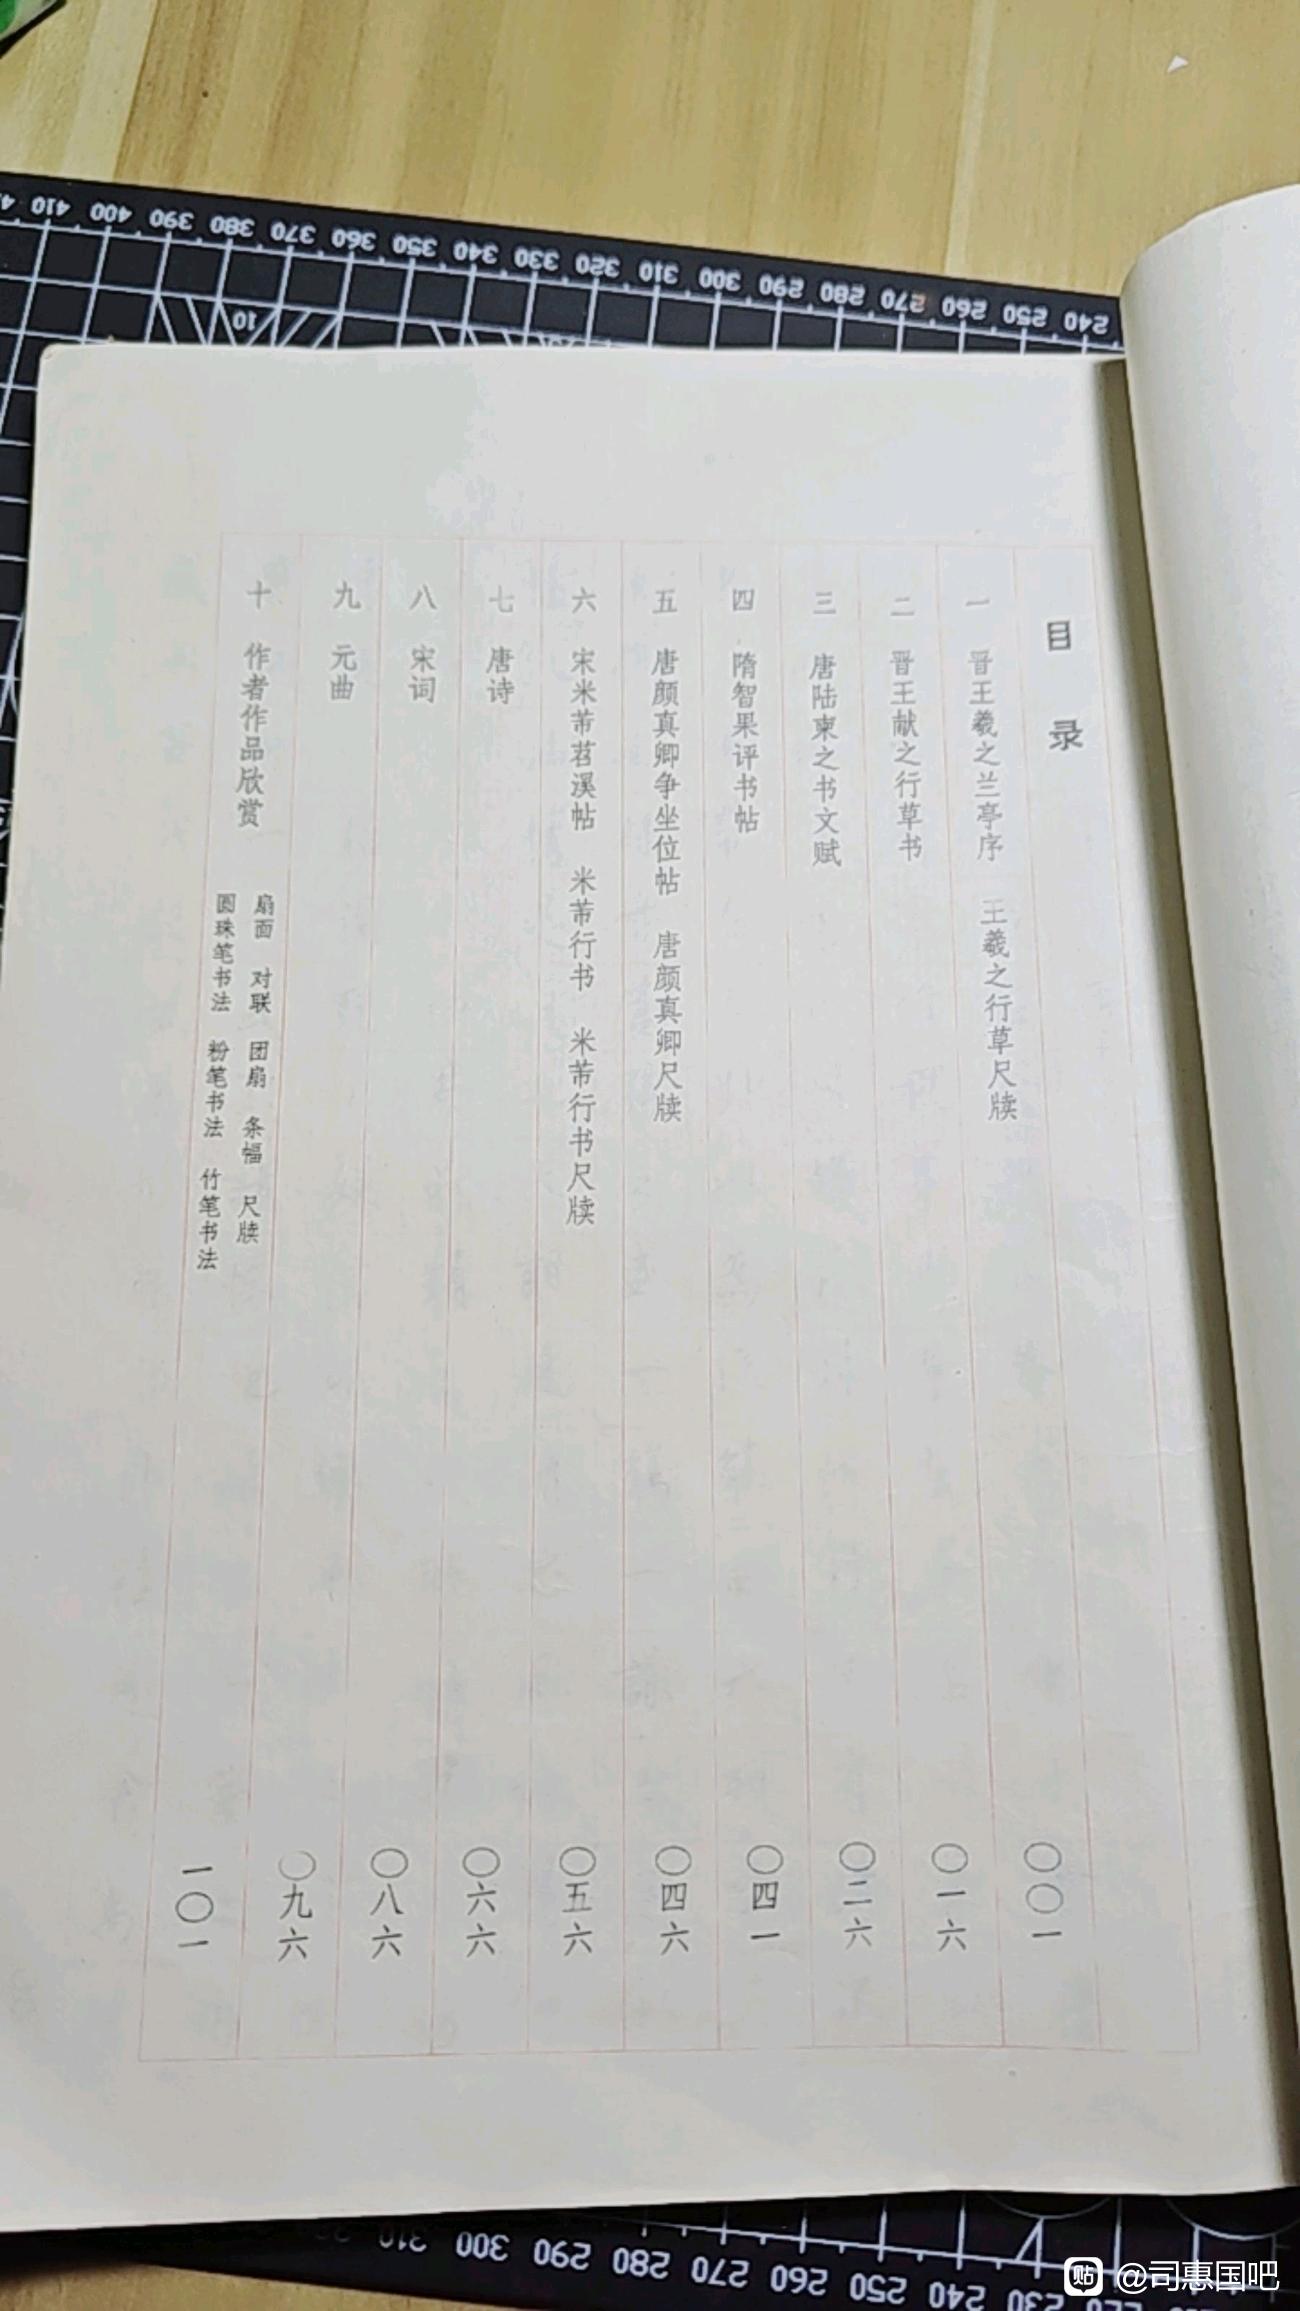 目录
一 晋王羲之兰亭序 王羲之行草尺牍 〇〇一
二 晋王献之行草书 〇一六
三 唐陆柬之书文赋 〇二六
四 隋智果评书帖 〇四一
五 唐颜真卿争坐位帖 唐颜真卿尺牍 〇四六
六 宋米芾苕溪帖 米芾行书 米芾行书尺牍 〇五六
七 唐诗 〇六六
八 宋词 〇八六
九 元曲 〇九六
十 作者作品欣赏 一〇一
扇面 对联 团扇 条幅 尺牍
圆珠笔书法 粉笔书法 竹笔书法
410 400 390 380 370 360 350 340 330 320 310 300 290 280 270 260 250 240
10
310 300 290 280 270 260 250 240 230 220 210
贴 @司惠国吧